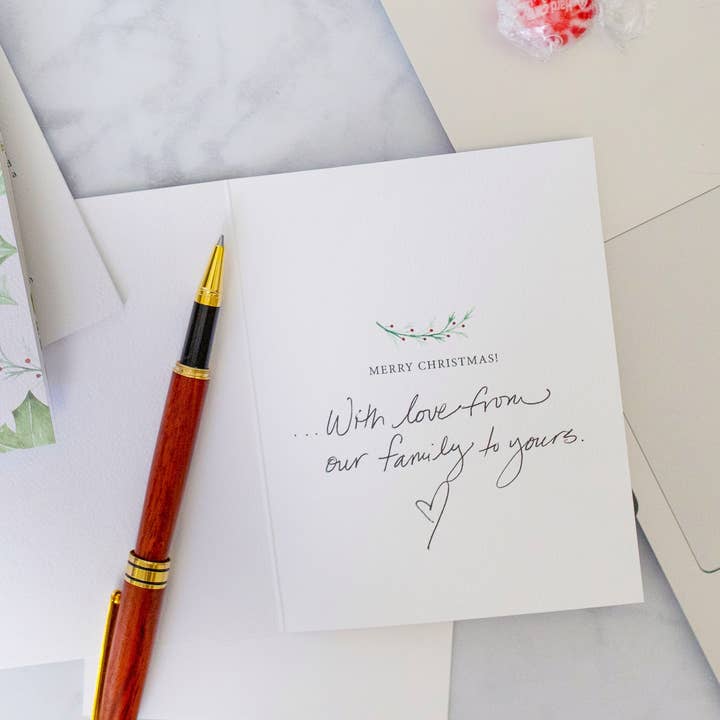 MERRY CHRISTMAS!
...With love from
our family to yours.